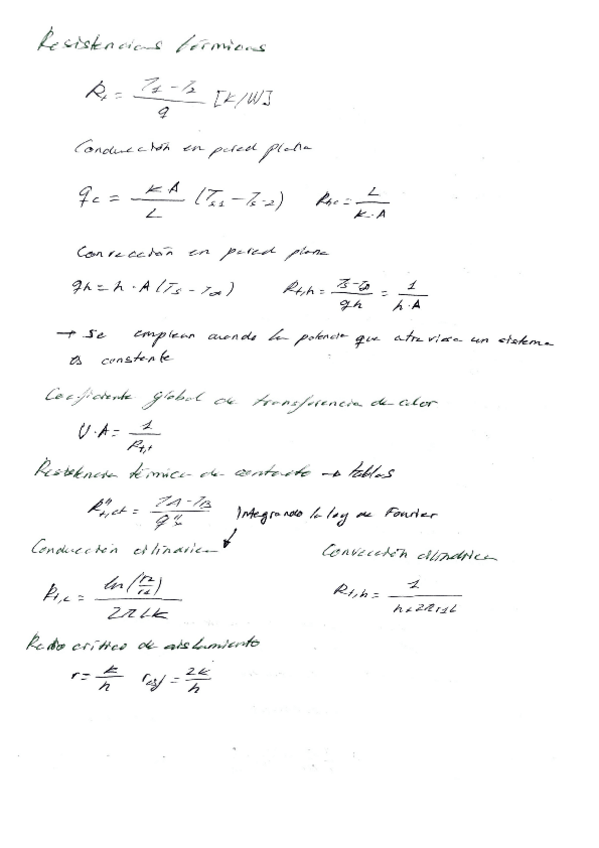 Resistencias térmicas
Rt = (T1 - T2) / q [K/W]
Conducción en pared plana
qc = kA/L (Ts1 - Ts2) Rt,c = L/(k·A)
Convección en pared plana
qh = h·A(Ts - T∞) Rt,h = (Ts - T∞)/qh = 1/(h·A)
→ Se emplean cuando la potencia que atraviesa un sistema
es constante
Coeficiente global de transferencia de calor
U·A = 1/Rt,t
Resistencia térmica de contacto → tablas
R"t,ct = (TA - TB)/q"c Integrando la ley de Fourier
Conducción cilíndrica Convección cilíndrica
Rt,c = ln(r2/r1)/(2πLk) Rt,h = 1/(h·2πr1L)
Radio crítico de aislamiento
r = k/h resf = 2k/h